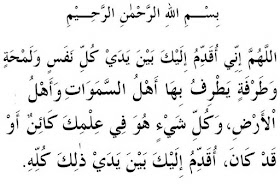 بِسْمِ اللهِ الرَّحْمٰنِ الرَّحِيْمِ
اللهُمَّ إِنِّي أُقَدِّمُ إِلَيْكَ بَيْنَ يَدَيْ كُلِّ نَفَسٍ وَلَمْحَةٍ
وَطَرْفَةٍ يَطْرِفُ بِهَا أَهْلُ السَّمَوَاتِ وَأَهْلُ
الْأَرْضِ، وَكُلِّ شَيْءٍ هُوَ فِي عِلْمِكَ كَائِنٌ أَوْ
قَدْ كَانَ، أُقَدِّمُ إِلَيْكَ بَيْنَ يَدَيْ ذٰلِكَ كُلِّهِ.